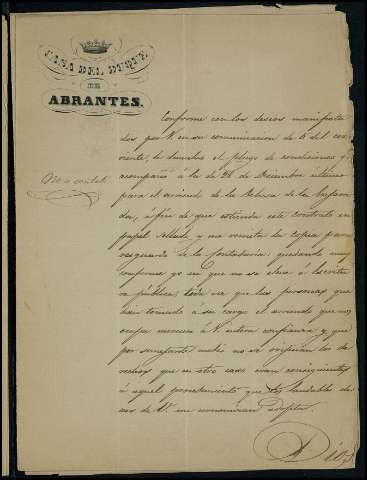 CASA DEL DUQUE
DE
ABRANTES.
Conforme con los deseos manifesta
dos por V. en su comunicacion de 6 del cor
riente, le devuelvo el pliego de condiciones q.
acompañó á la de 28 de Diciembre último
para el arriendo de la Dehesa de la
da, á fin de que estienda este contrato en
papel sellado, y me remita la copia para
resguardo de la Contaduria, quedando muy
conforme yo en que no se eleve á Escritu
ra pública, toda vez que las personas que
han tomado á su cargo el arriendo que nos
ocupa merecen á V. entera confianza, y que
por semejante medio no se originan los de
rechos que en otro caso eran consiguientes
á aquel procedimiento que los laudables de
seos de V. me